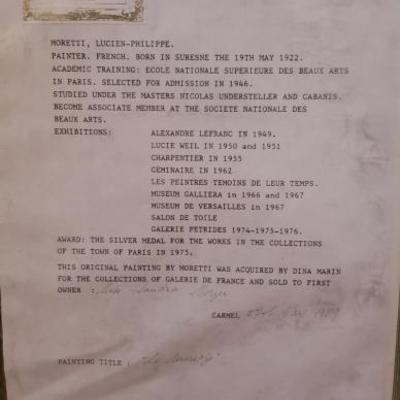 MORETTI, LUCIEN-PHILIPPE.
PAINTER. FRENCH. BORN IN SURESNE THE 19TH MAY 1922.
ACADEMIC TRAINING: ECOLE NATIONALE SUPERIEURE DES BEAUX ARTS
IN PARIS. SELECTED FOR ADMISSION IN 1946.
STUDIED UNDER THE MASTERS NICOLAS UNDERSTELLER AND CABANIS.
BECOME ASSOCIATE MEMBER AT THE SOCIETE NATIONALE DES
BEAUX ARTS.
EXHIBITIONS: ALEXANDRE LEFRANC IN 1949.
LUCIE WEIL IN 1950 and 1951
CHARPENTIER IN 1955
GEMINAIRE IN 1962
LES PEINTRES TEMOINS DE LEUR TEMPS.
MUSEUM GALLIERA in 1966 and 1967
MUSEUM DE VERSAILLES in 1967
SALON DE TOILE
GALERIE PETRIDES 1974-1975-1976.
AWARD: THE SILVER MEDAL FOR THE WORKS IN THE COLLECTIONS
OF THE TOWN OF PARIS IN 1975.
THIS ORIGINAL PAINTING BY MORETTI WAS ACQUIRED BY DINA MARIN
FOR THE COLLECTIONS OF GALERIE DE FRANCE AND SOLD TO FIRST
OWNER : Sandra
CARMEL
PAINTING TITLE :